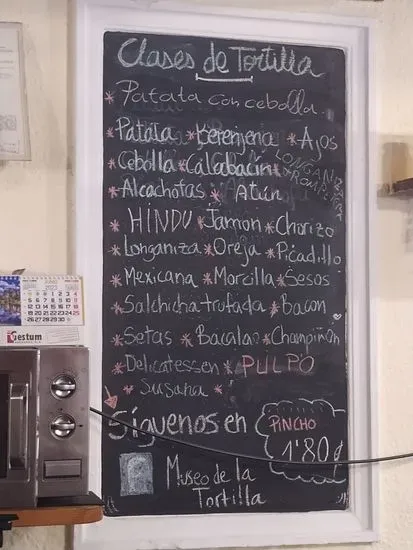 Clases de Tortilla
* Patata con cebolla.
* Patata * Berenjena * Ajos
* Cebolla * Calabacín * LONGANIZA
* Alcachofas * Atún
* HINDU * Jamon * Chorizo
* Longaniza * Oreja * Picadillo
* Mexicana * Morcilla * Sesos
* Salchicha trufada * Bacon
* Setas * Bacalao * Champiñón
* Delicatessen * PULPO
* Susana *
Síguenos en
PINCHO
1'80 €
Museo de la
Tortilla
JUNIO
2023
Gestum